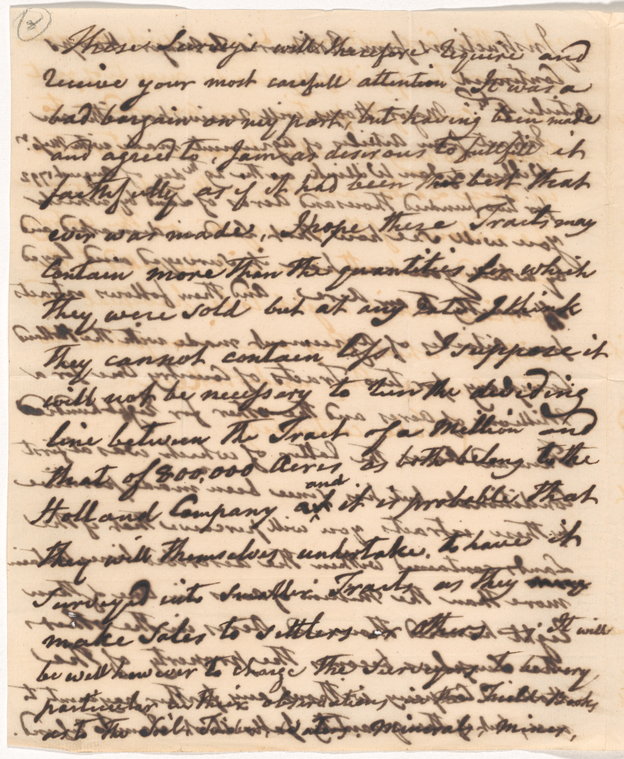 2
These Surveys will therefore require and
receive your most carefull attention It was a
bad bargain on my part, but having been made
and agreed to, I am as desirous to fullfill it
faithfully as if it had been the best that
ever was made, I hope these Tracts may
contain more than the quantities for which
they were sold but at any rate I think
they cannot contain less. I suppose it
will not be necessary to run the dividing
line between the Tract of a Million and
that of 800,000 Acres as both belong to the
Holland Company and it is probable that
they will themselves undertake to have it
Surveyed into smaller Tracts as they may
make Sales to Settlers or others It will
be well however to charge the Surveyors to be very
particular in their observations, Field Books
as to the Soil Timber Waters, minerals, mines,